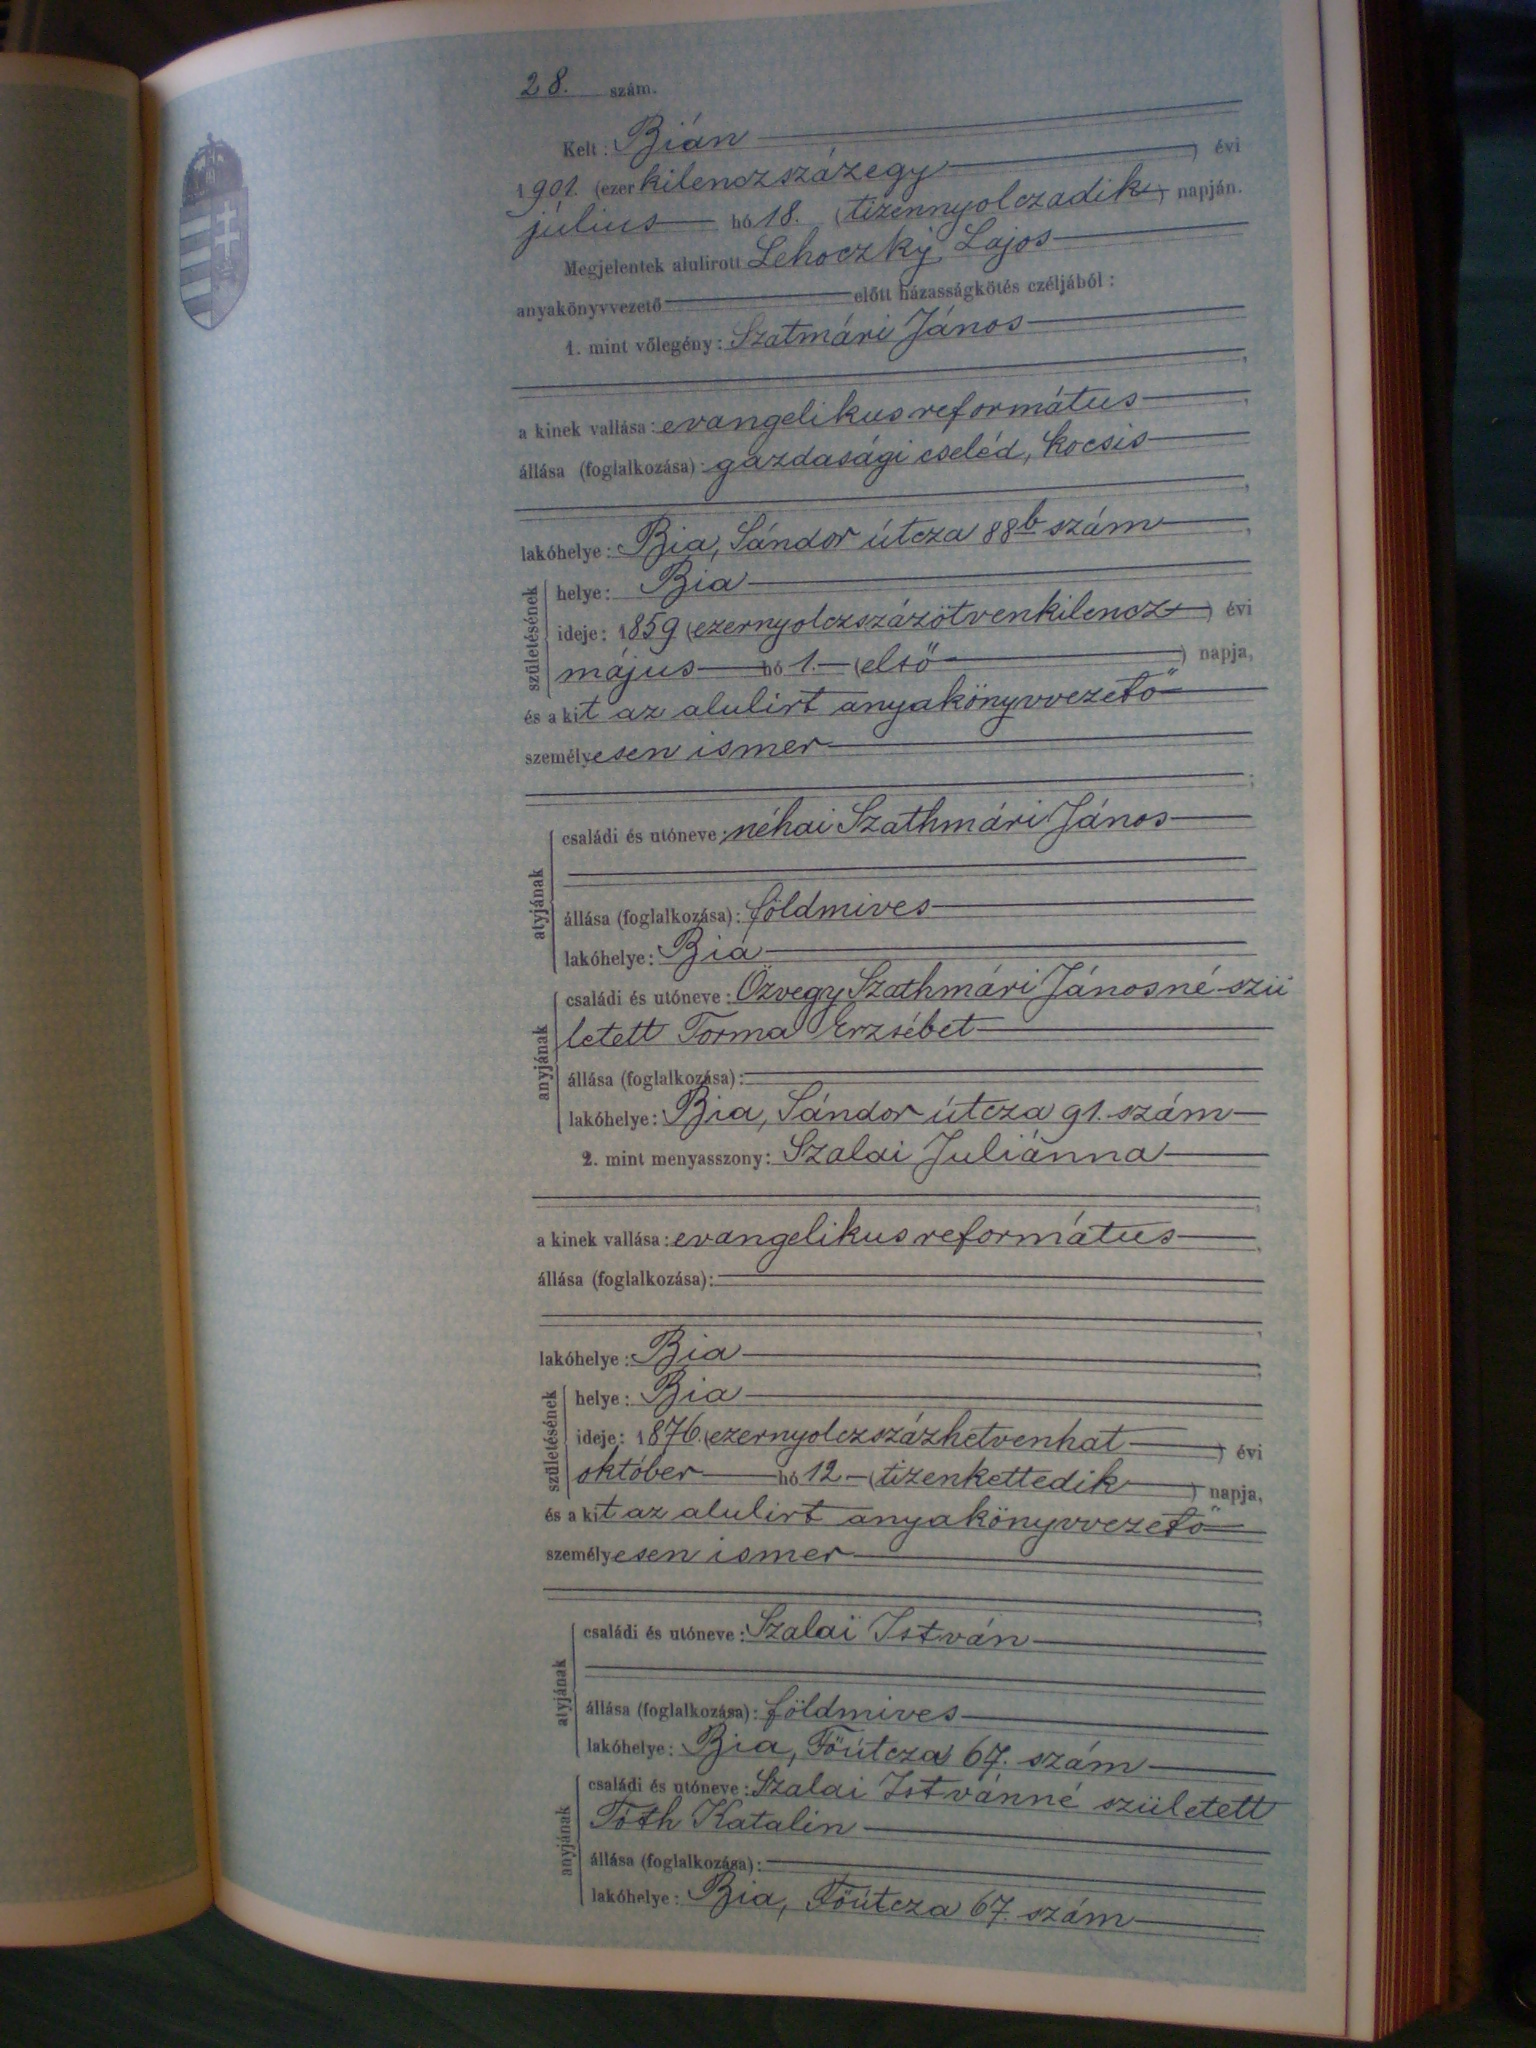 28. szám.
Kelt: Bián
1901. (ezerkilenczszázegy) évi
július hó 18. (tizennyolczadik) napján.
Megjelentek alulirott Lehoczky Lajos
anyakönyvvezető előtt házasságkötés czéljából:
1. mint vőlegény: Szatmári János
a kinek vallása: evangelikus református
állása (foglalkozása): gazdasági cseléd, kocsis
lakóhelye: Bia, Sándor útcza 88b szám
születésének
helye: Bia
ideje: 1859 (ezernyolczszázötvenkilencz) évi
május hó 1. (első) napja,
és a kit az alulirt anyakönyvvezető
személyesen ismer
atyjának
családi és utóneve: néhai Szathmári János
állása (foglalkozása): földmives
lakóhelye: Bia
anyjának
családi és utóneve: Özvegy Szathmári Jánosné szü
letett Torma Erzsébet
állása (foglalkozása):
lakóhelye: Bia, Sándor útcza 91. szám
2. mint menyasszony: Szalai Juliánna
a kinek vallása: evangelikus református
állása (foglalkozása):
lakóhelye: Bia
születésének
helye: Bia
ideje: 1876. (ezernyolczszázhetvenhat) évi
október hó 12 (tizenkettedik) napja,
és a kit az alulirt anyakönyvvezető
személyesen ismer
atyjának
családi és utóneve: Szalai István
állása (foglalkozása): földmives
lakóhelye: Bia, Főútcza 67. szám
anyjának
családi és utóneve: Szalai Istvánné született
Tóth Katalin
állása (foglalkozása):
lakóhelye: Bia, Főútcza 67. szám